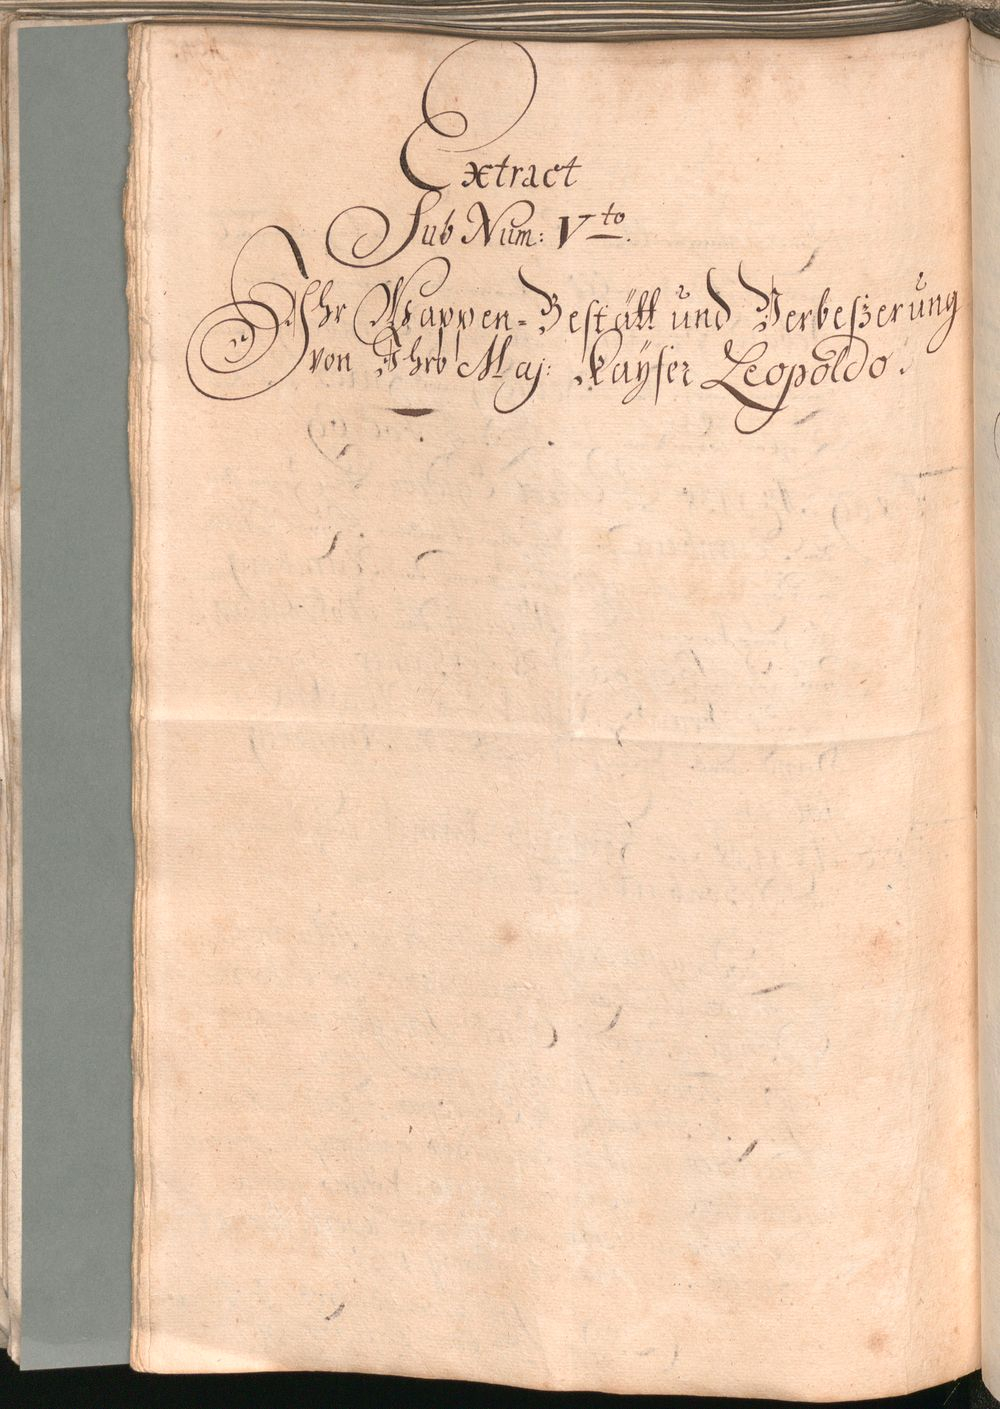 Extract
Sub Num: Vto.
Ihr Wappen-Bestätt und Verbeßerung
von Ihro Maj: Kayser Leopoldo.